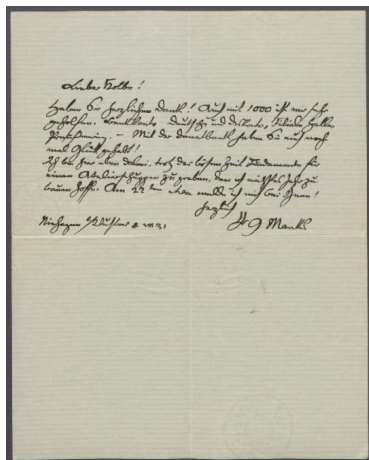 Lieber Kolbe!
Haben Sie herzlichen Dank! Auch mit 1000 ist mir sehr
geholfen. Bankkonto Deutsche und Disconto, Filiale Halle
. – Mit der haben Sie auch noch
mal Glück gehabt!
Ich bin hier oben dabei, trotz der bösen Zeit Fundamente für
einen Atelierschuppen zu graben, den ich nächstes Jahr zu
bauen hoffe. Am 22 ten etwa melde ich mich bei Ihnen!
herzlich
Niehagen 8 VIII 31 G Marcks